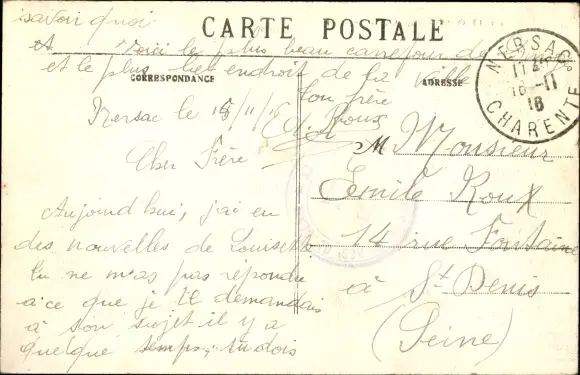 savoir quoi
CARTE POSTALE
Voici le plus beau carrefour de
et le plus bel endroit de la ville
CORRESPONDANCE
ADRESSE
Ton frère
Roux
Nersac le 15/11/16
Cher Frère
Aujourd'hui, j'ai eu
des nouvelles de Louisette
tu ne m'as pas répondu
a ce que je te demandais
à son sujet il y a
quelque temps, tu dois
M Monsieur
Emile Roux
14 rue Fontaine
à St Denis
(Seine)
NERSAC
16-11
16
CHARENTE